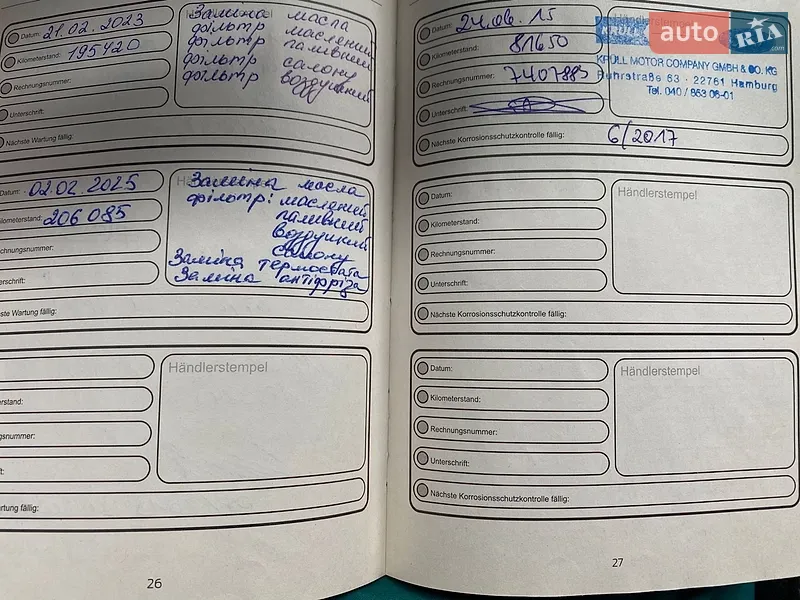 Datum: 21.02.2023
Kilometerstand: 195420
Rechnungsnummer:
Unterschrift:
Nächste Wartung fällig:
Заміна масла
фільтр масляний
фільтр паливний
фільтр салону
фільтр воздушний
Datum: 02.02.2025
Kilometerstand: 206 085
chnungsnummer:
erschrift:
ste Wartung fällig:
Заміна масла
фільтр: масляний
паливний
воздушний
салону
Заміна термостата
Заміна антіфріза
Händlerstempel
erstand:
gsnummer:
t:
rtung fällig:
26
Datum: 24.06.15
Kilometerstand: 81650
Rechnungsnummer: 7407885
Unterschrift:
Nächste Korrosionsschutzkontrolle fällig: 6/2017
Händlerstempel
KRÜLL
auto RIA
.com
KRÜLL MOTOR COMPANY GMBH & CO. KG
Ruhrstraße 63 · 22761 Hamburg
Tel. 040 / 853 06-01
Datum:
Kilometerstand:
Rechnungsnummer:
Unterschrift:
Nächste Korrosionsschutzkontrolle fällig:
Händlerstempel
Datum:
Kilometerstand:
Rechnungsnummer:
Unterschrift:
Nächste Korrosionsschutzkontrolle fällig:
Händlerstempel
27